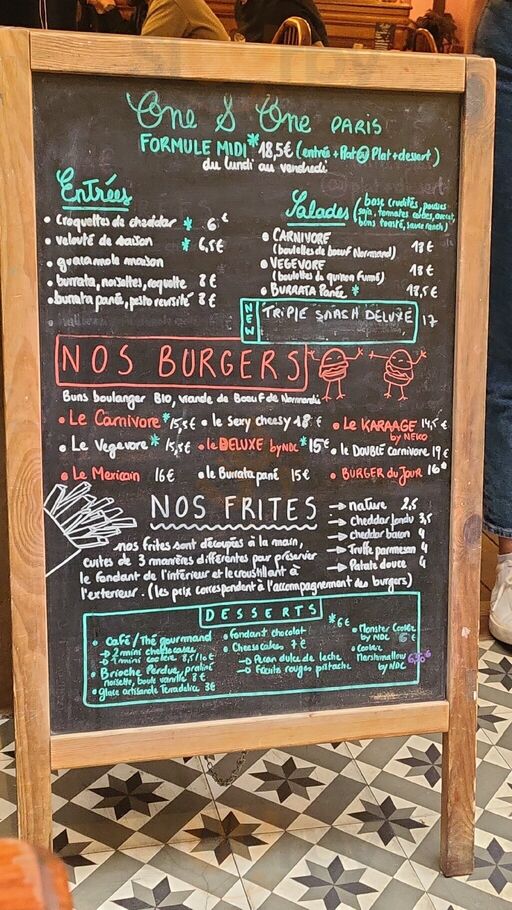 One & One PARIS
FORMULE MIDI * 18,5€ (entrée + Plat ou Plat + dessert)
du lundi au vendredi
Entrées
• Croquettes de cheddar * 6€
• velouté de saison * 6,5€
• guacamole maison
• burrata, noisettes, roquette 8€
• burrata panée, pesto revisité 8€
Salades (base crudités, pousses
soja, tomates cerises, avocat,
buns toasté, sauce ranch)
• CARNIVORE 18€
(boulettes de boeuf Normand)
• VEGEVORE 18€
(boulettes de quinoa fumé)
• BURRATA Panée * 18,5€
NEW TRIPLE SMASH DELUXE 17
NOS BURGERS
Buns boulanger BIO, viande de Boeuf de Normandie
• Le Carnivore * 15,5€ • le Sexy cheesy 18€ • Le KARAAGE 14,5€
by NEKO
• Le Vegevore * 15,5€ • le DELUXE by NDC * 15€ • le DOUBLE Carnivore 19€
• Le Mexicain 16€ • le Burrata pané 15€ • BURGER du Jour 16€
NOS FRITES
→ nature 2,5
→ cheddar fondu 3,5
→ cheddar bacon 4
→ Truffe parmesan 4
→ Patate douce 4
nos frites sont découpées à la main,
cuites de 3 manières différentes pour préserver
le fondant de l'intérieur et le croustillant à
l'exterieur. (les prix correspondent à l'accompagnement des burgers)
DESSERTS
* 6€
• Café/Thé gourmand
→ 2 mini cheesecakes
→ 1 mini cookie 8,5/10€
• Brioche Perdue, praliné
noisette, boule vanille 8€
• glace artisanale Terradelice 3€
• Fondant chocolat
• Cheesecakes 7€
→ Pecan dulce de leche
→ Fruits rouges pistache
• Monster Cookie
by NDC 6€
• Cookie
Marshmallow
by NDC